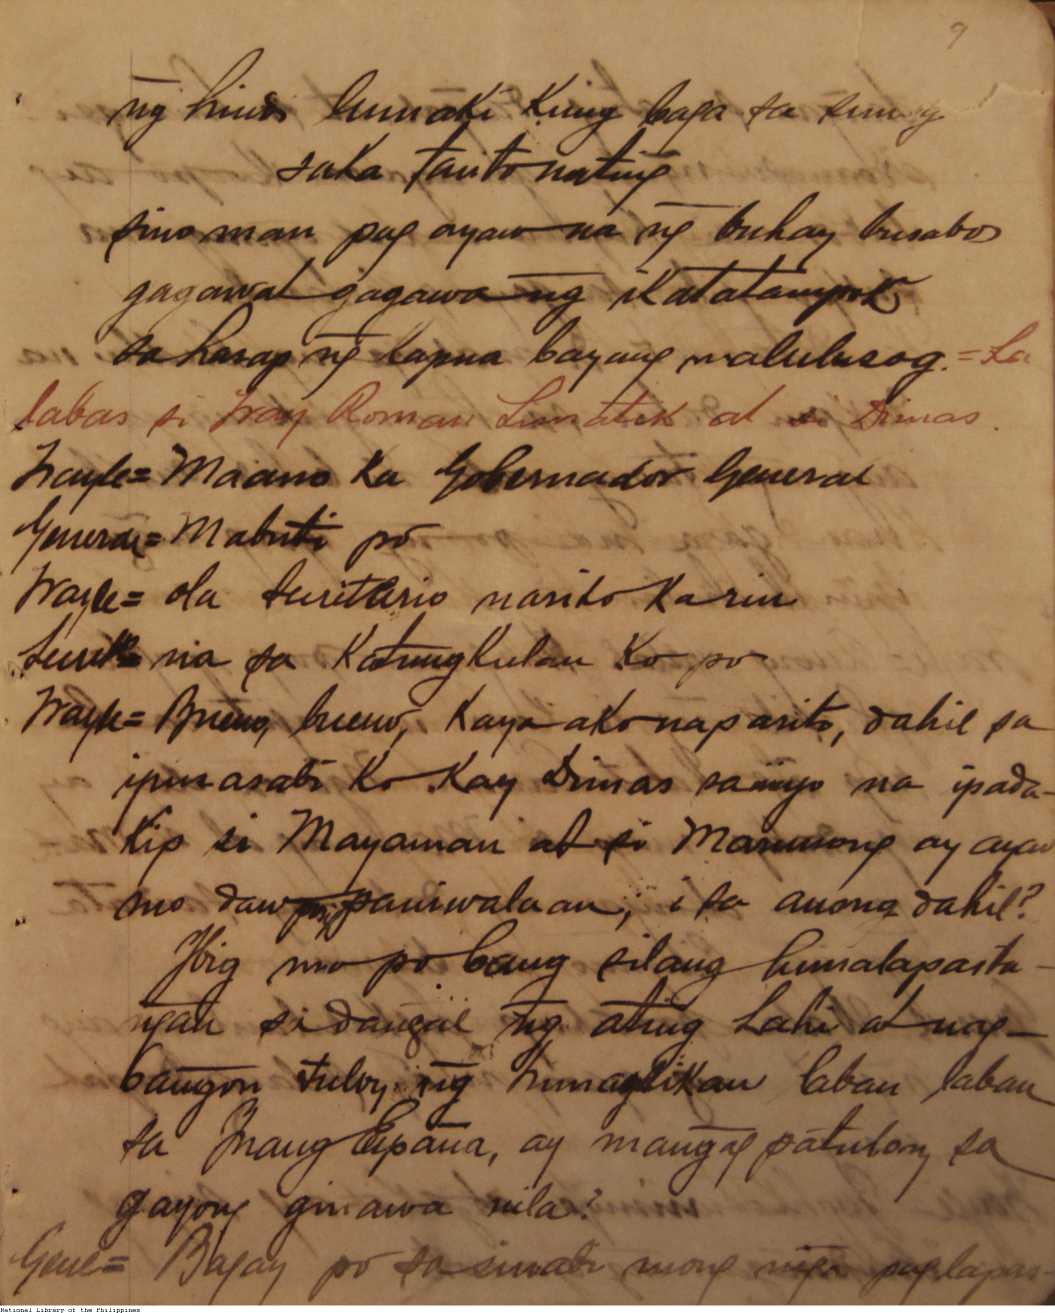 9
ng̃ hindi lumaki kung baga sa sunog
saka tanto nating̃
sino man pag ayaw na ng̃ buhay busabos
gagawa't gagawa ng̃ ikatatampok
sa harap ng̃ kapua bayang malulusog. = La
labas si Fray Roman Lunatik at si Dimas.
Frayle = Maano ka Gobernador General
General = Mabuti pô
Frayle = Ola Secritario narito ka rin
Secrit = nia sa katungkulan ko po
Frayle = Bueno, bueno, kaya ako naparito, dahil sa
ipinasabi ko kay Dimas sainyo na ipada-
kip si Mayaman at si Marunong ay ayaw
mo daw paniwalaan, i sa anong dahil?
Ibig mo po bang silang lumalapasta-
ng̃an si dang̃al ng̃ ating Lahi at nag-
bang̃on tuloy ng̃ himagsikan laban laban
sa Inang España, ay mang̃ag patuloy sa
gayong ginawa nila?
Gene = Bagay po sa sinabi mong mg̃a paglapas-
National Library of the Philippines